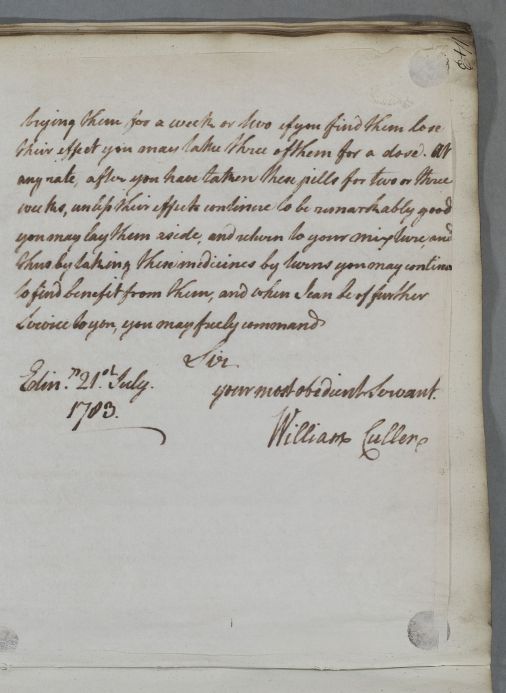 trying them for a week or two if you find them lose
their effect you may take three of them for a dose. At
any rate, after you have taken these pills for two or three
weeks, unless their effects continue to be remarkably good
you may lay them aside, and return to your mixture and
thus by taking these medicines by turns you may continue
to find benefit from them, and when I can be of further
Service to you, you may freely command
Sir
Edin.r 21.st July. your most obedient Servant.
1783.
William Cullen